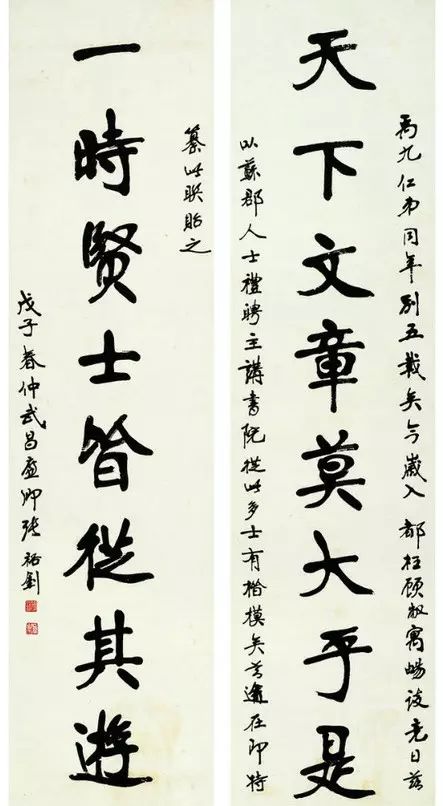 禹九仁弟同年别五載矣今歲入都枉顧敝寓暢談竟日茲
天下文章莫大乎是
以蘇郡人士禮聘主講書院從此多士有楷模矣首途在即特
纂此联貽之
一時賢士皆從其遊
戊子春仲武昌廉卿張裕釗